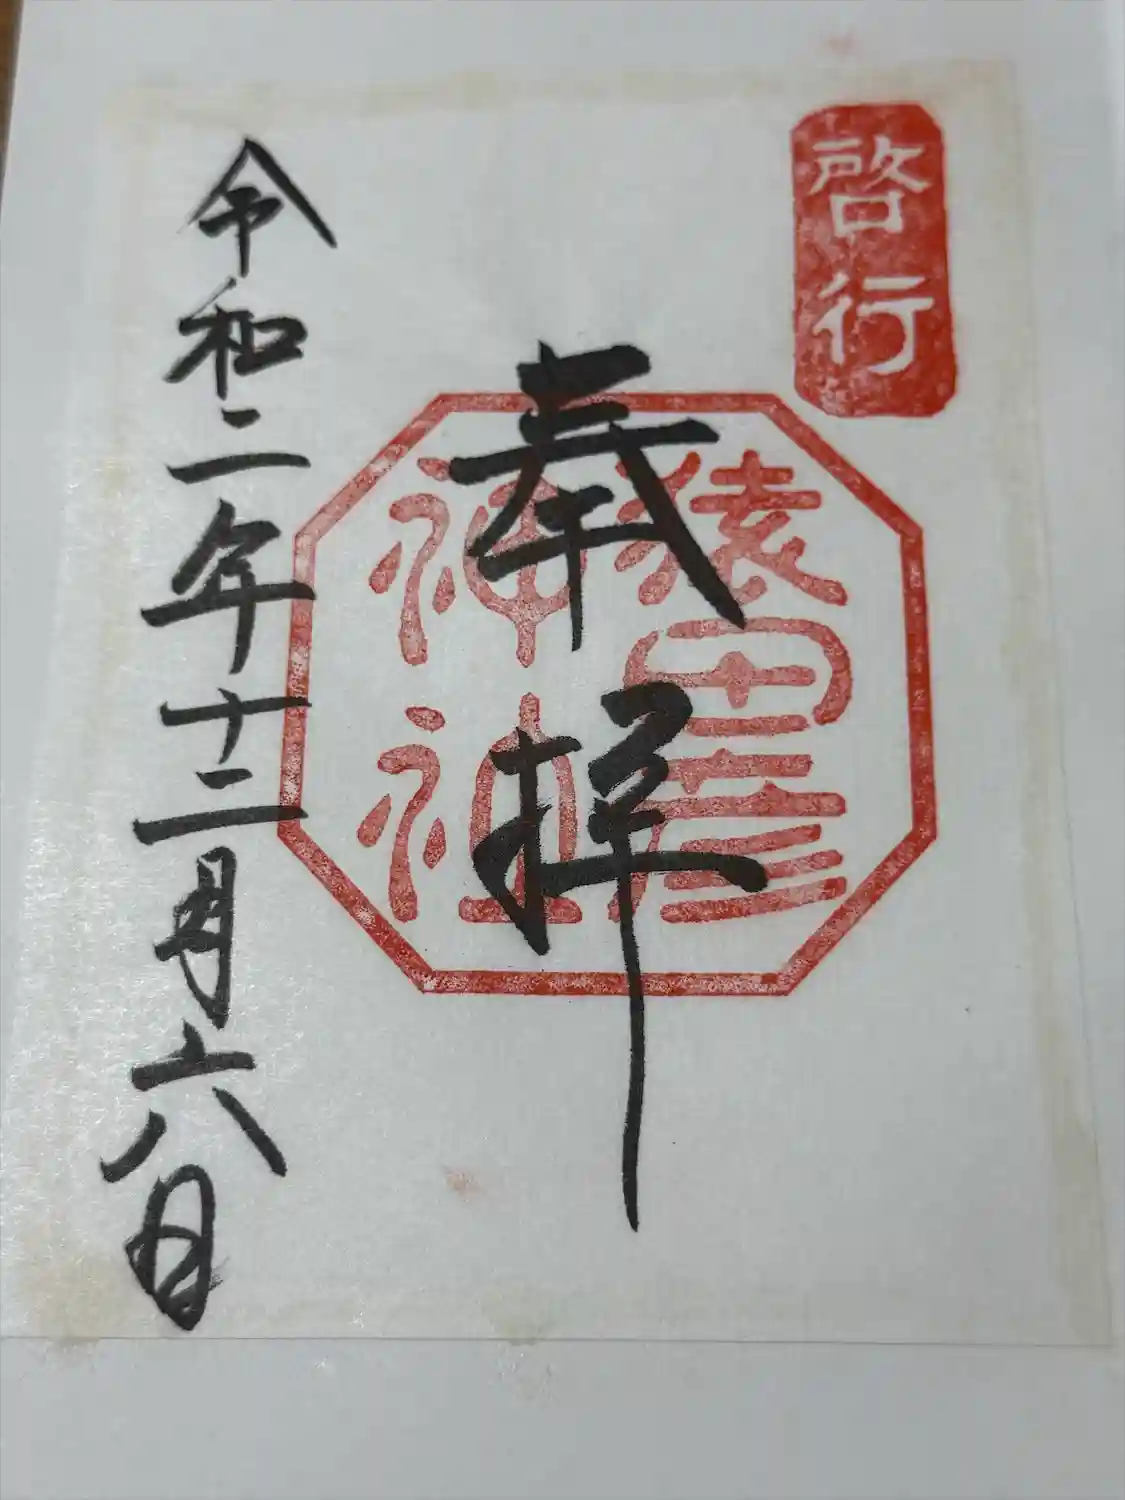 啓行
奉拝
猿田彦
神社
令和二年十二月六日